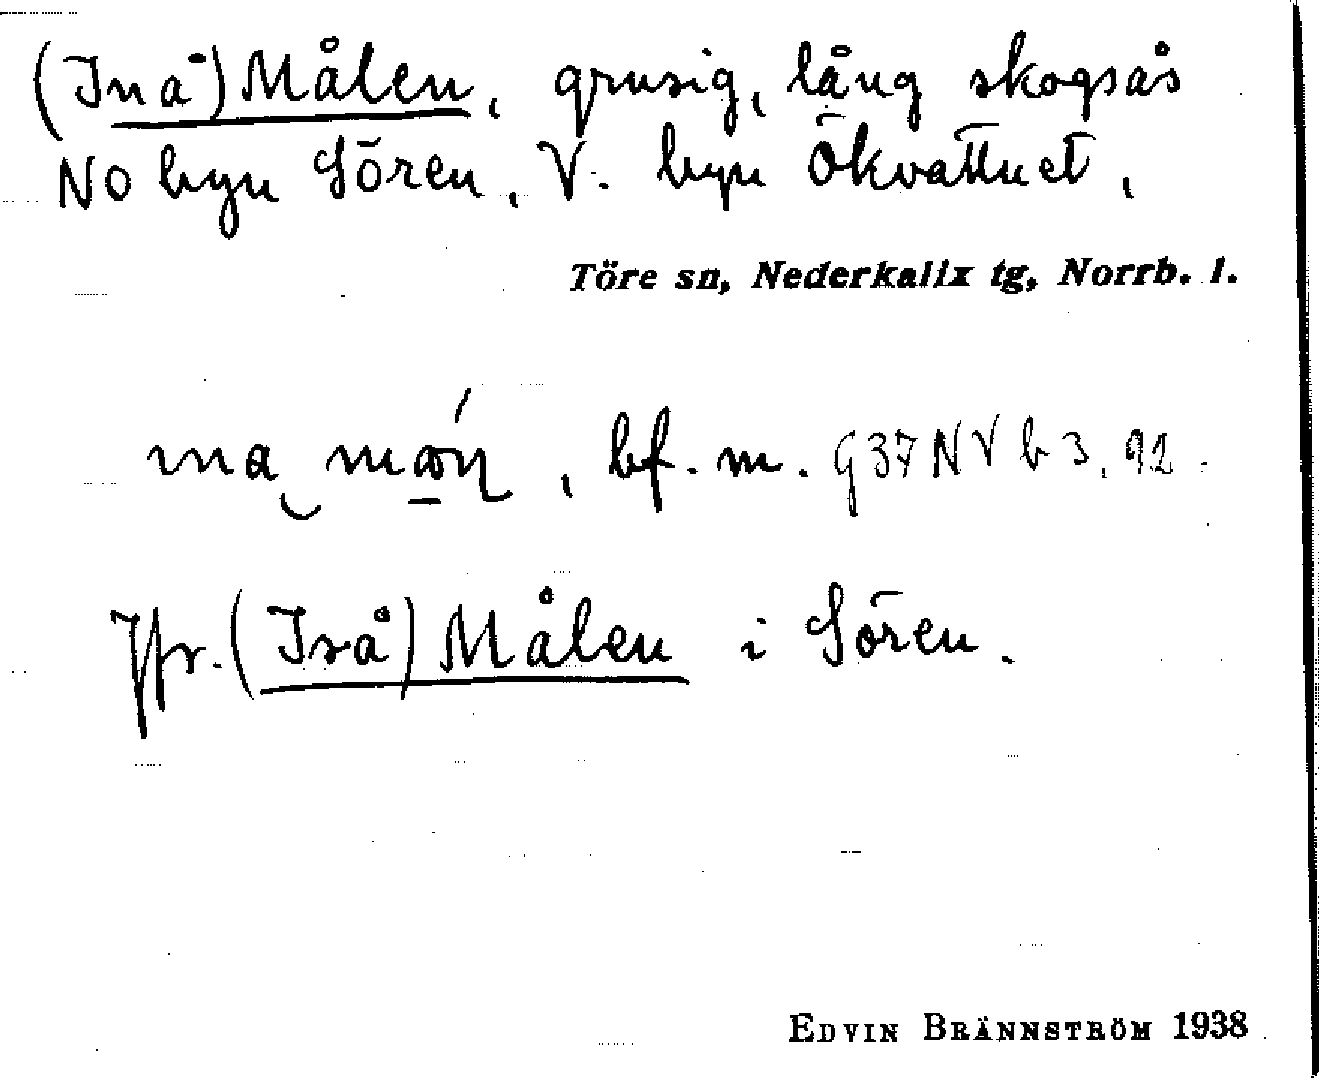 (Inå) Målen, grusig, lång skogsås
NO byn Sören, V. byn Ökvattnet,
Töre sn, Nederkalix tg, Norrb. l.
bf. m. G37NVb3, 92.
Jfr. (Iså) Målen i Sören.
EDVIN BRÄNNSTRÖM 1938